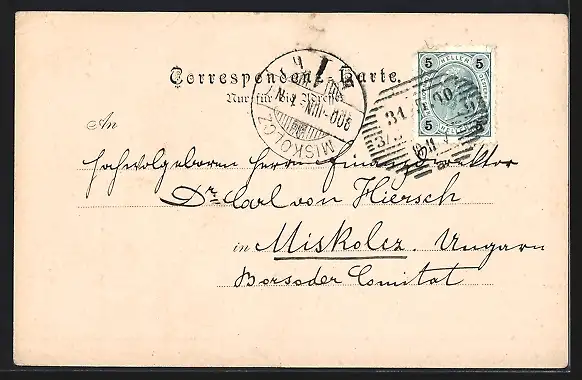 Correspondenz-Karte.
Nur für die Adresse
5 HELLER 5
5 HELLER 5
MISKOLCZ
31
An
Hochwolgeboren Herrn Finanzdirektor
Dr. Carl von Hiersch
in Miskolcz. Ungarn
Borsoder Comitat